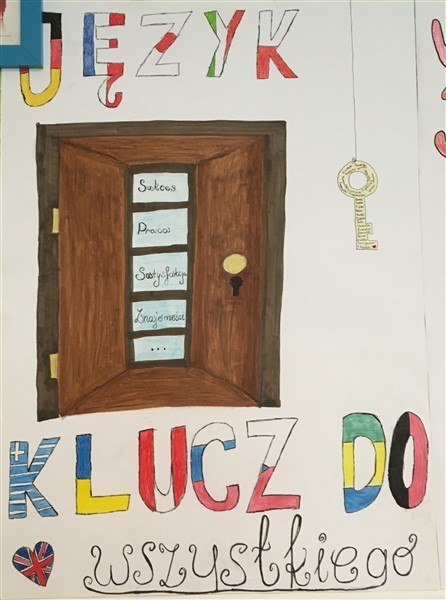 JĘZYK
Sukces
Praca
Satysfakcja
Znajomości
...
KLUCZ DO
wszystkiego